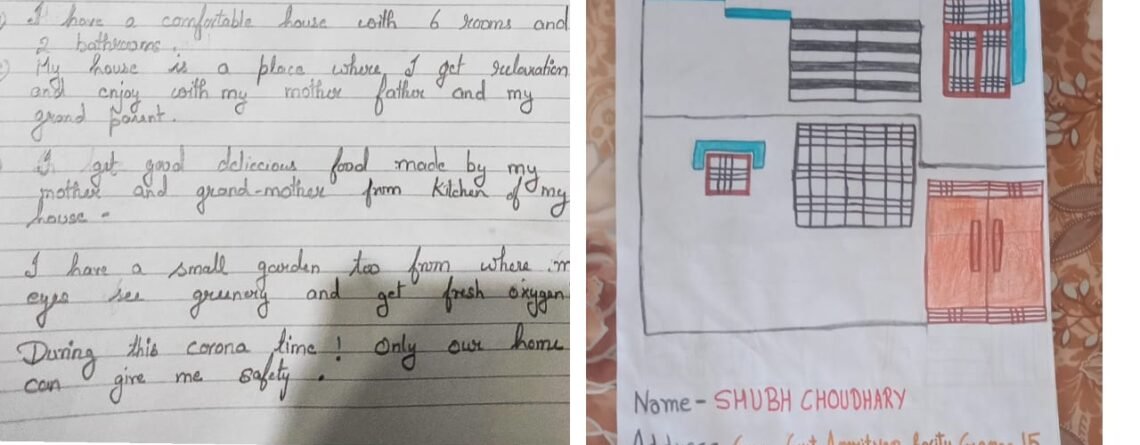 I have a comfortable house with 6 rooms and
2 bathrooms.
My house is a place where I get relaxation
and enjoy with my mother father and my
grand parent.
I get good deliccious food made by my
mother and grand-mother from kitchen of my
house -
I have a small garden too from where m
eyes see greenery and get fresh oxygen
During this corona time! Only our home
can give me safety.
Name - SHUBH CHOUDHARY